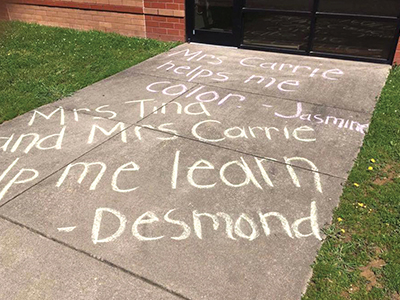 Mrs Carrie
helps me
color - Jasmine
Mrs Tina
and Mrs Carrie
help me learn
- Desmond